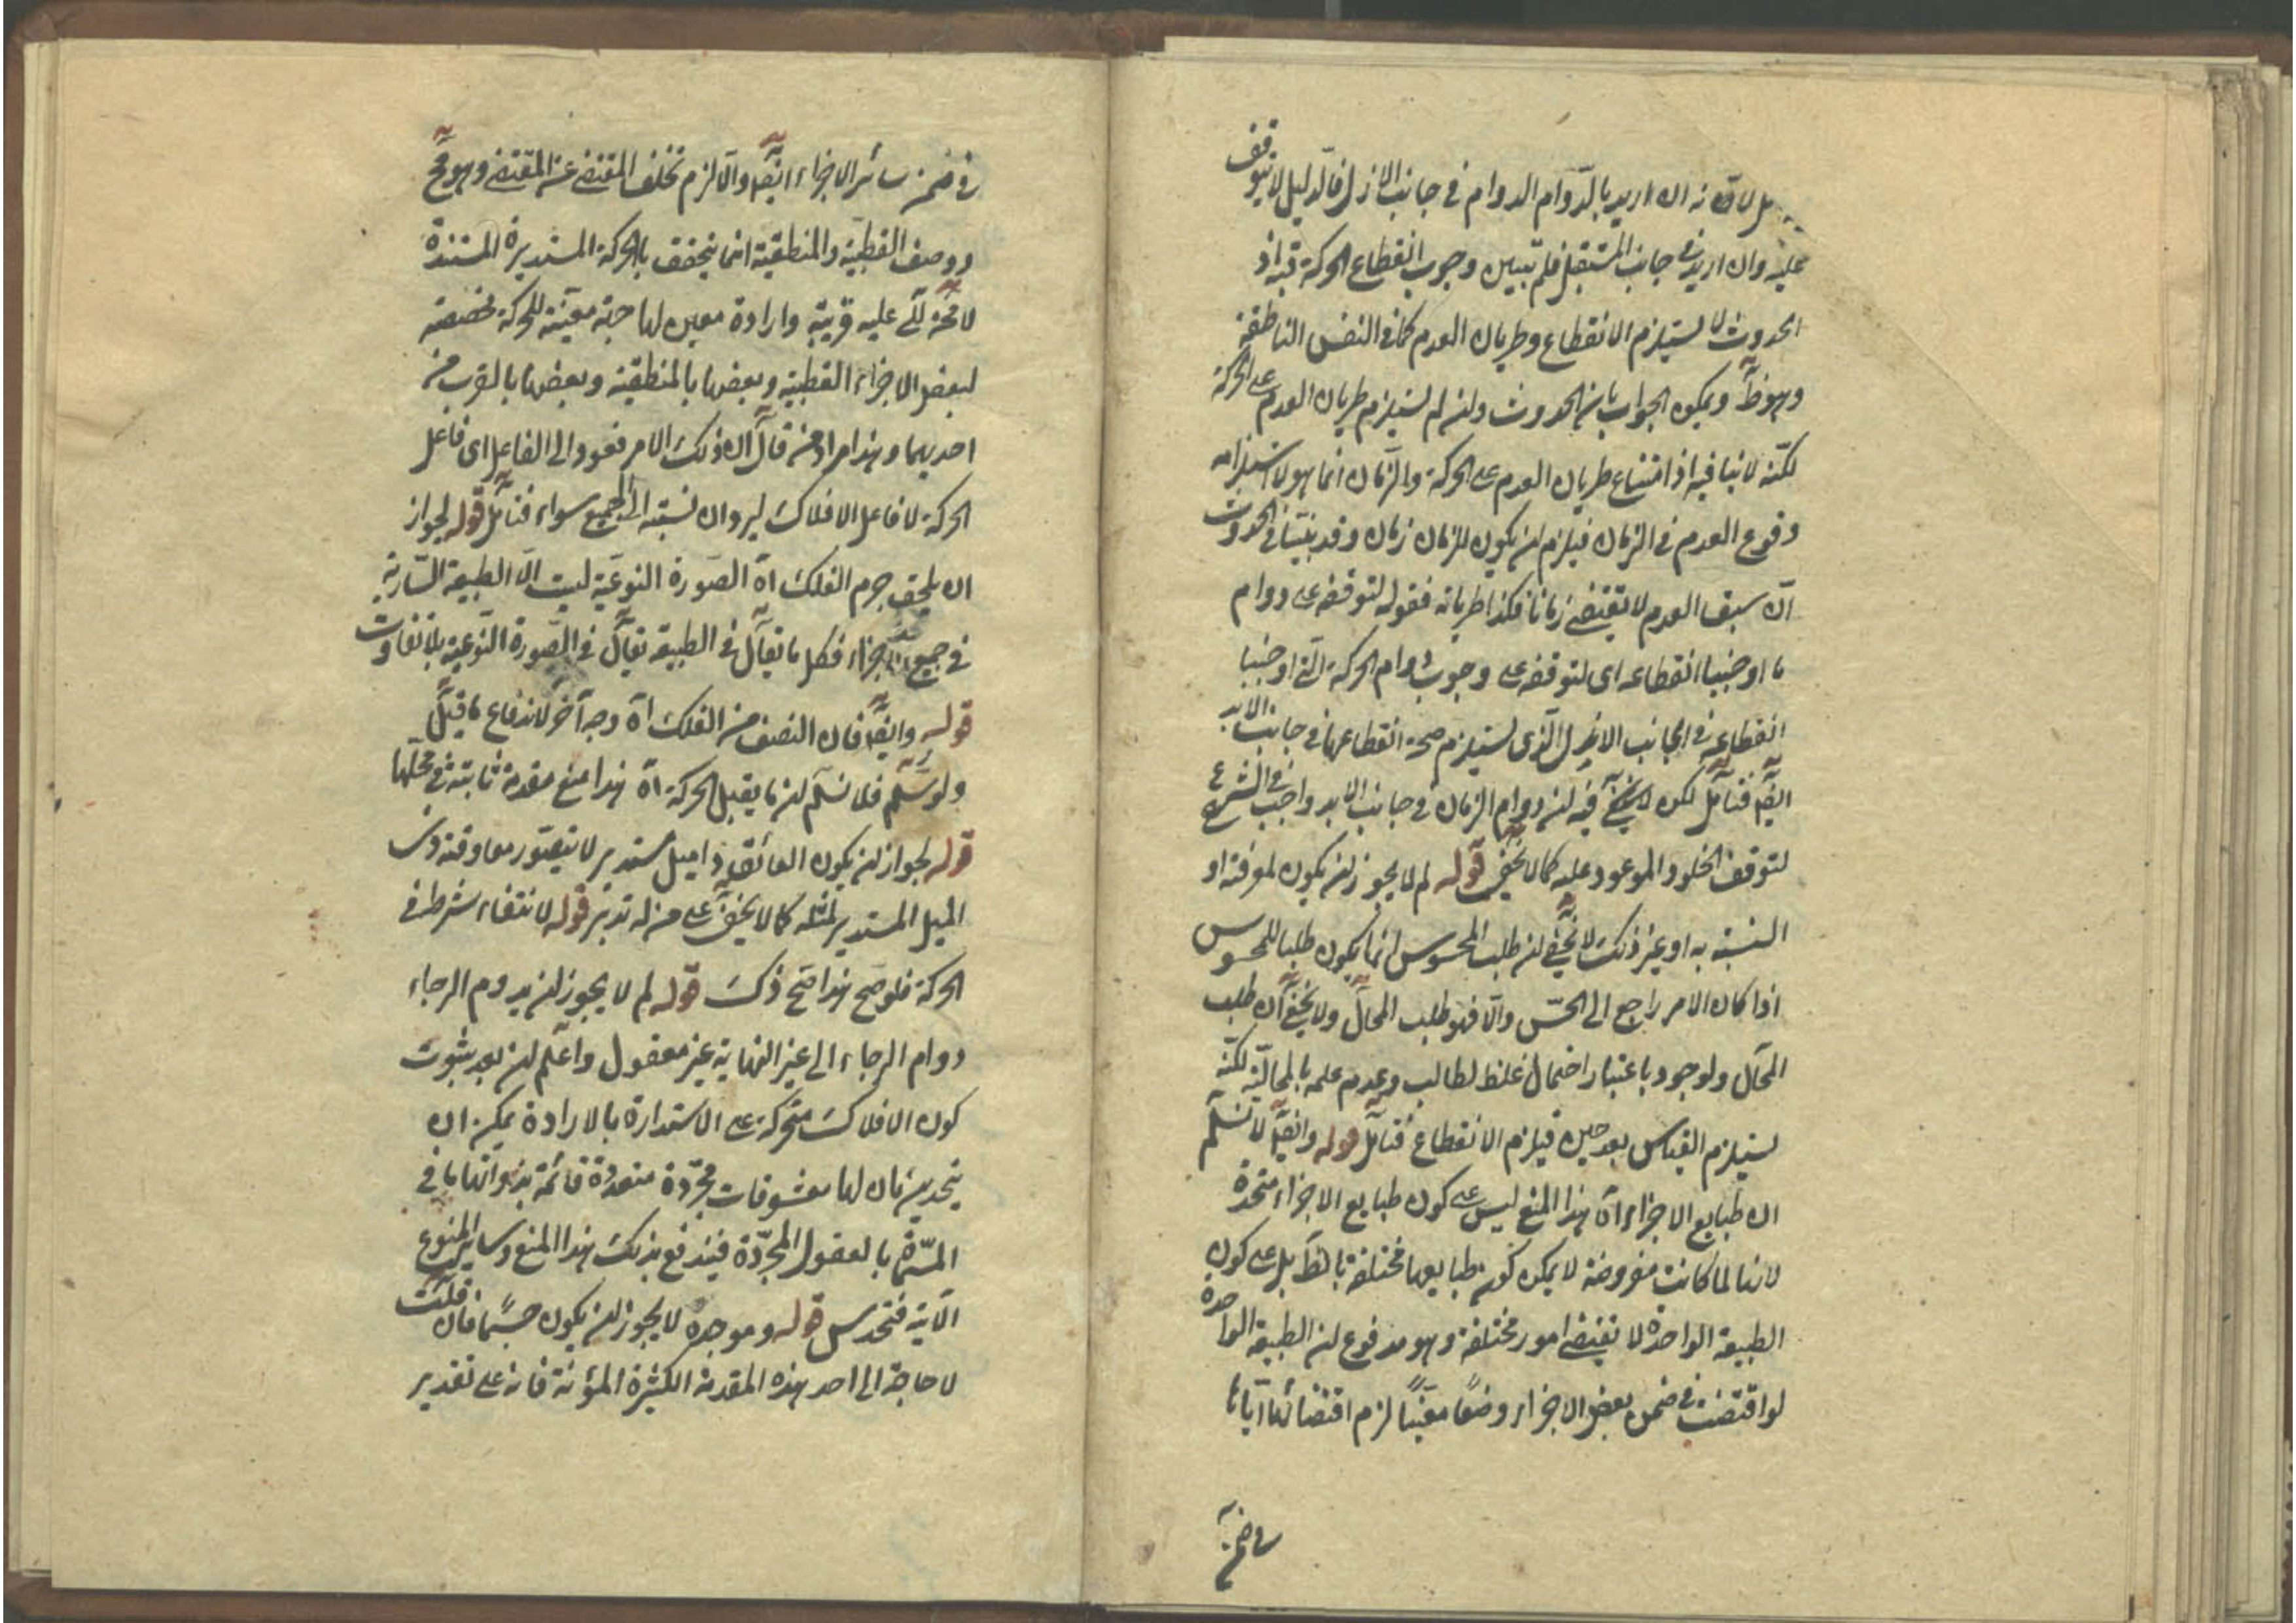 لانه ان اريد بالدّوام الدوام في جانب الازل فالدليل لا يتوقف
عليه وان اريد في جانب المستقبل فلم تبين وجوب انقطاع الحركة فيه اذ
الحدوث لا يستلزم الانقطاع وطريان العدم كما في النفس الناطقة
وهو ظ ويمكن الجواب بان الحدوث وان لم يستلزم طريان العدم على الحركة
لكنّه لا ينافيه اذ امتناع طريان العدم على الحركة والزّمان انما هو لاستلزامه
وقوع العدم في الزمان فيلزم ان يكون للزمان زمان وقد بيّنا في الحدوث
انّ سبق العدم لا يقتضي زمانا فكذا طريانه فقوله لتوقفه على دوام
ما اوجبنا انقطاعه اى لتوقفه على وجوب دوام الحركة الّتى اوجبنا
انقطاعه في الجانب الازل الّذى يستلزم صحة انقطاعها في جانب الابد
ايضً فتأمّل لكن فيه ان دوام الزمان في جانب الابد واجب في الشرع
لتوقف الخلود الموعود عليه كما لا يخفى قوله لم لا يجوز ان يكون لمعرفته او
النسبة به او غير ذلك لا يخفى ان طلب المحسوس انما يكون طلبا للمحسوس
اذا كان الامر راجع الى الحسّ والّا فهو طلب المحال ولا يخفى ان طلب
المحال ولو جود باعتبار احتمال غلط لطالب وعدم علمه بالمحاليّة لكنّه
يستلزم القياس بعد حين فيلزم الانقطاع فتأمل قوله وايضً لا نسلّم
ان طبايع الاجزاء اه هذا المنع ليس على كون طبايع الاجزاء متحدة
لانها لما كانت مفروضة لا يمكن كون طبايعها مختلفة بالفظ بل على كون
الطبيعة الواحدة لا تقتضى امور مختلفة وهو مدفوع لان الطبيعة الواحدة
لو اقتضت في ضمن بعض الاجزاء وضعًا معيّنًا لزم اقتضائها ايّاها
في ضمن
في ضمن سائر الاجزاء ايضً والّا لزم تخلف المقتضى عن المقتضى وهو مح
ووصف القطبية والمنطقية انما يتحقق بالحركة المستديرة المستندة
لامحة الى عليه قريبة وارادة معين لها جهة معيّنة للحركة مخصصة
لبعض الاجزاء القطبية وبعضها بالمنطقية وبعضها بالقرب من
احديهما وهذا مراد من قال ان ذلك الامر فعود الى الفاعل اى فاعل
الحركة لا فاعل الافلاك ليرد ان نسبته الى الجميع سواء فتأمّل قوله لجواز
ان يلحق جرم الفلك اه الصّورة النوعيّة ليست الّا الطبيعة السّارية
في جميع الاجزاء فكل ما يقال في الطبيعة يقال في الصّورة النّوعية بلا تفاوت
قوله وايضً فان النصف من الفلك اه وجه آخر لاندفاع ما قيل
ولو سلّم فلا نسلّم ان ما يقبل الحركة اه هذا منع مقدمة ثابتة في محلّها
قوله لجواز ان يكون العائق ذا ميل مستدير لا يتصوّر معاوقة ذى
الميل المستدير لمثله كما لا يخفى على من له تدبر قوله لانتفاء شرط في
الحركة فلو صح هذا صحّ ذلك قوله لم لا يجوز ان يدوم الرجاء
دوام الرجاء الى غير النهاية غير معقول واعلم ان بعد ثبوت
كون الافلاك متحركة على الاستدارة بالارادة يمكن ان
يتحدس بان لها معشوقات مجرّدة متعددة قائمة بذواتها ما في
المسمّاة بالعقول المجرّدة فيندفع بذلك هذا المنع وساير المنوع
الآتية فتحدس قوله وموجدة لا يجوز ان يكون جسمًا فان قلت
لا حاجة الى احد هذه المقدمة الكثيرة المؤنة فانه على تقدير